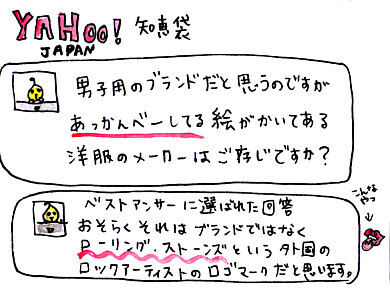 YAHOO! 知恵袋
JAPAN
男子用のブランドだと思うのですが
あっかんべーしてる絵がかいてある
洋服のメーカーはご存じですか?
ベストアンサーに選ばれた回答
おそらくそれはブランドではなく
ローリング・ストーンズという外国の
ロックアーティストのロゴマークだと思います。
こんなやつ